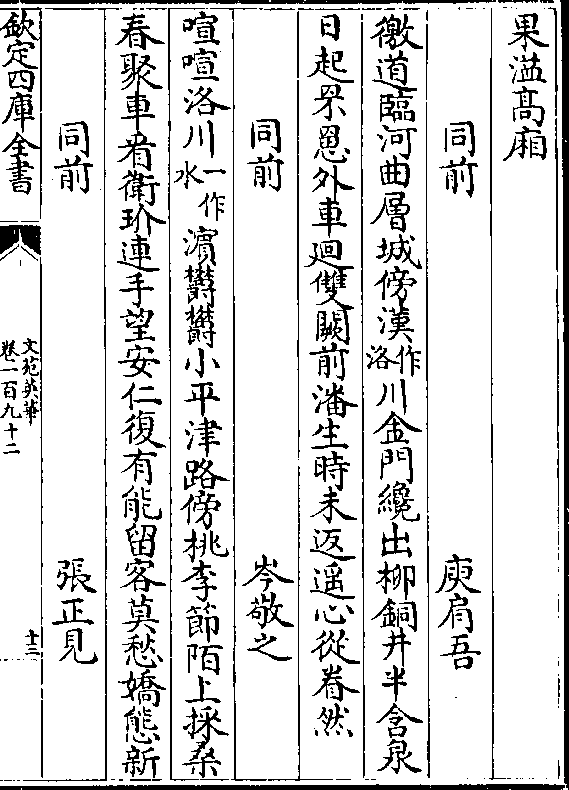 果溢髙廂
同前 庾肩吾
徼道臨河曲層城傍漢作洛川金門纔出柳銅井半含泉
日起罘罳外車廻雙闕前潘生時未返遥心從眷然
同前 岑敬之
喧喧洛川一作水濵欝欝小平津路傍桃李節陌上採桑
春聚車看衛玠連手望安仁復有能留客莫愁嬌態新
同前 張正見
欽定四庫全書 文苑英華 卷一百九十二 十三